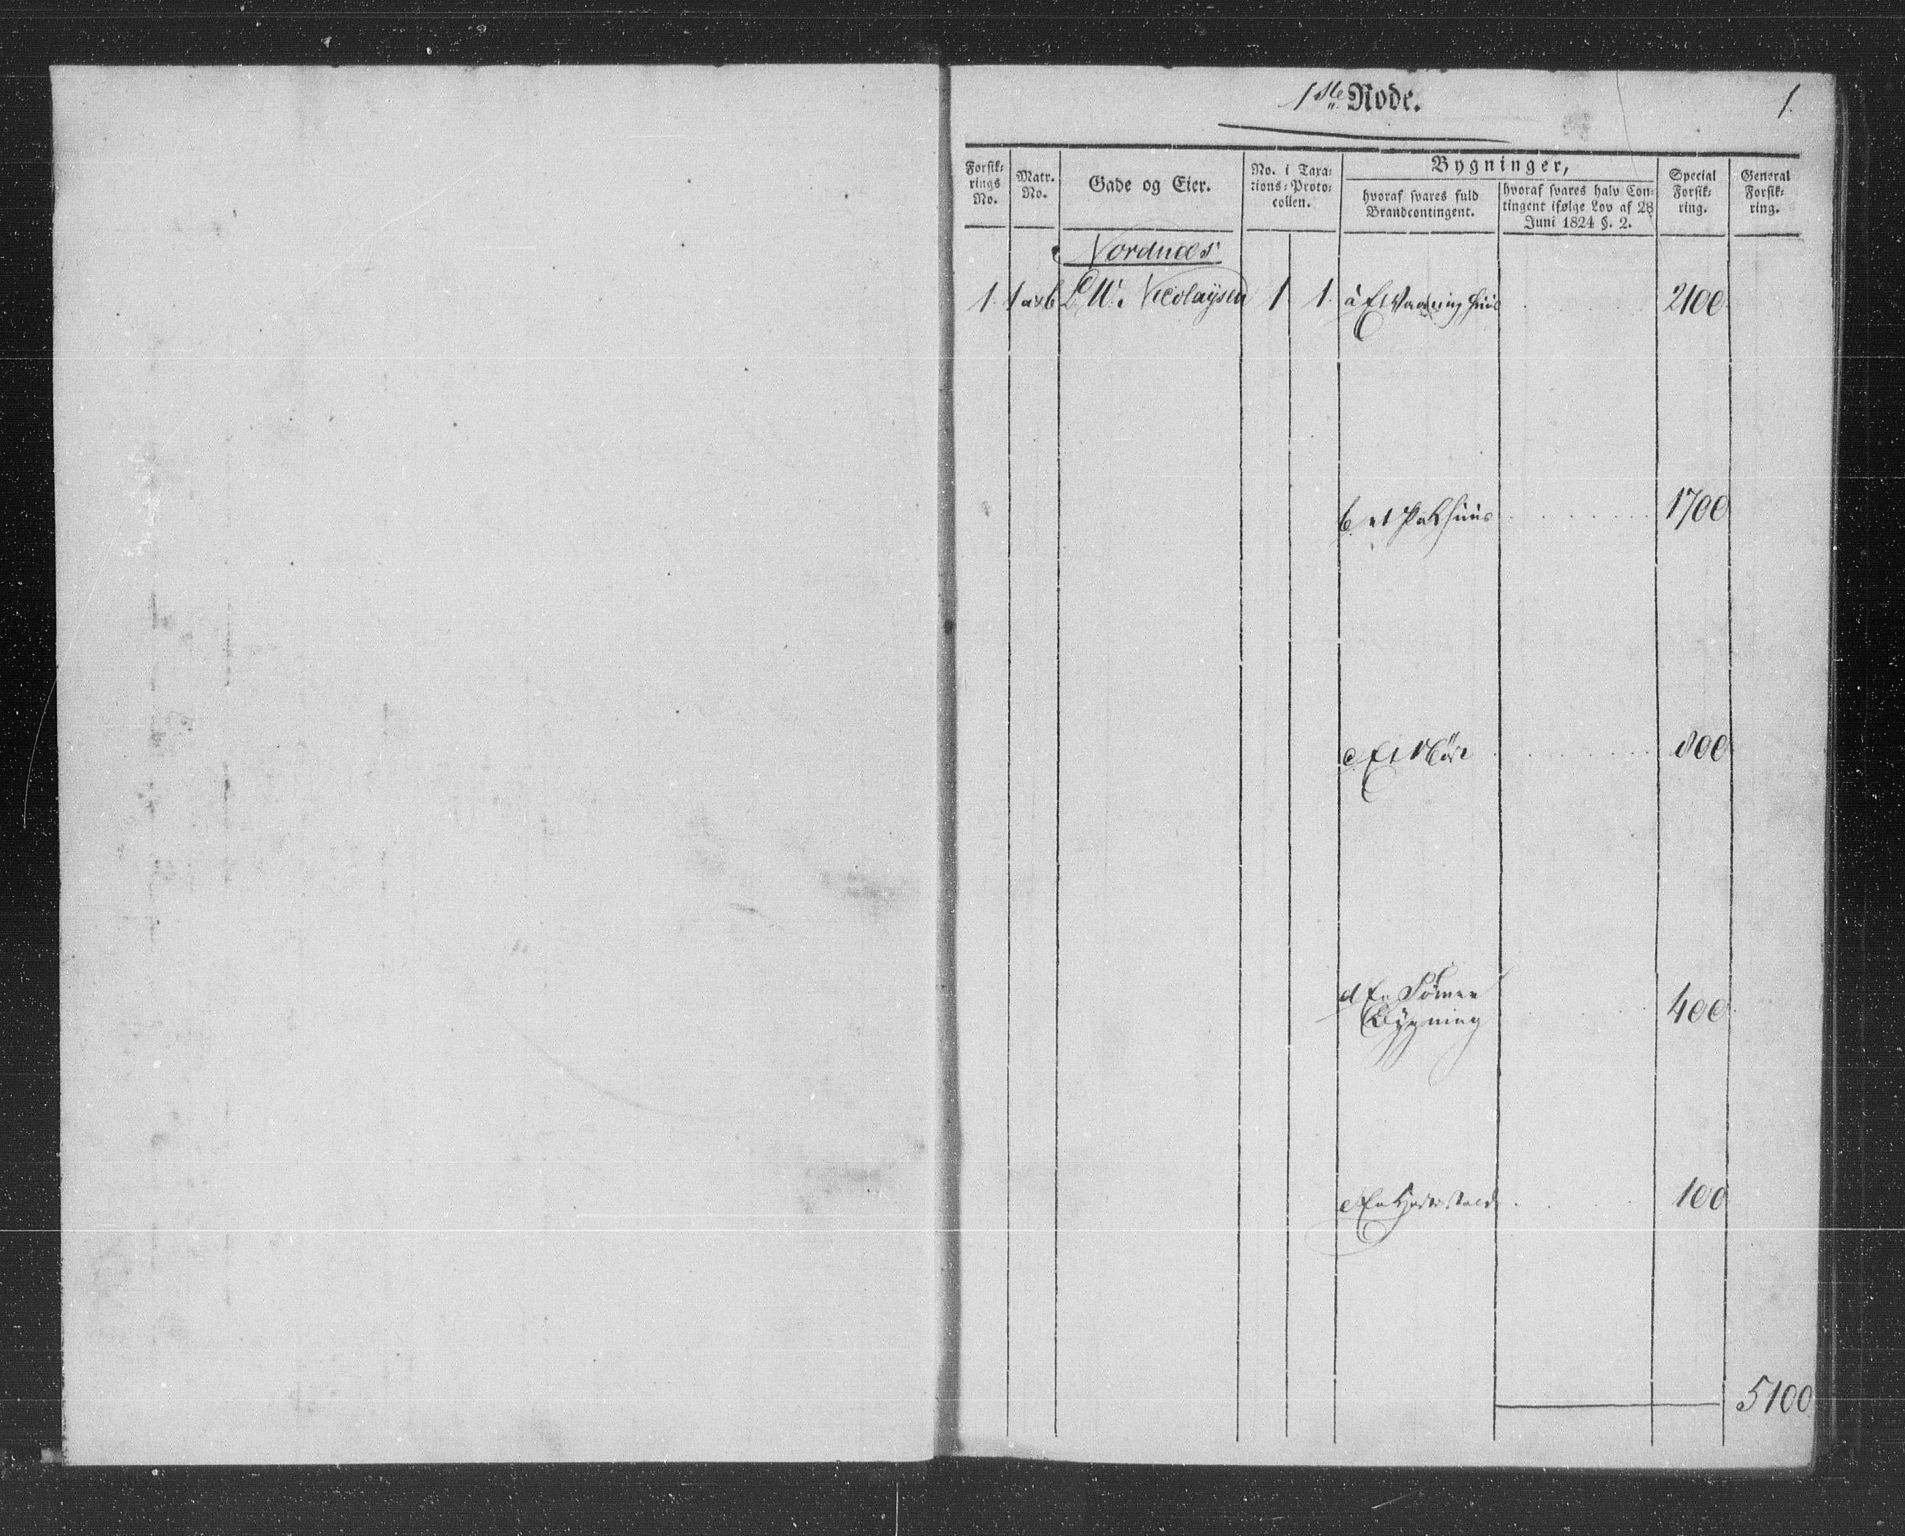 1ste Rode.
1.
Forsik-
rings
No.
Matr.
No.
Gade og Eier.
No. i Taxa-
tions-Proto-
collen.
Bygninger,
hvoraf svares fuld
Brandcontingent.
hvoraf svares halv Con-
tingent ifølge Lov af 28
Juni 1824 §. 2.
Special
Forsik-
ring.
General
Forsik-
ring.
Nordnæs
1. 1 a&b W. Nicolaysen 1 1. a Et Vaaninghuus 2100
b et Pakhuus 1700
c Et 800
d En
Bygning 400
e En 100
5100